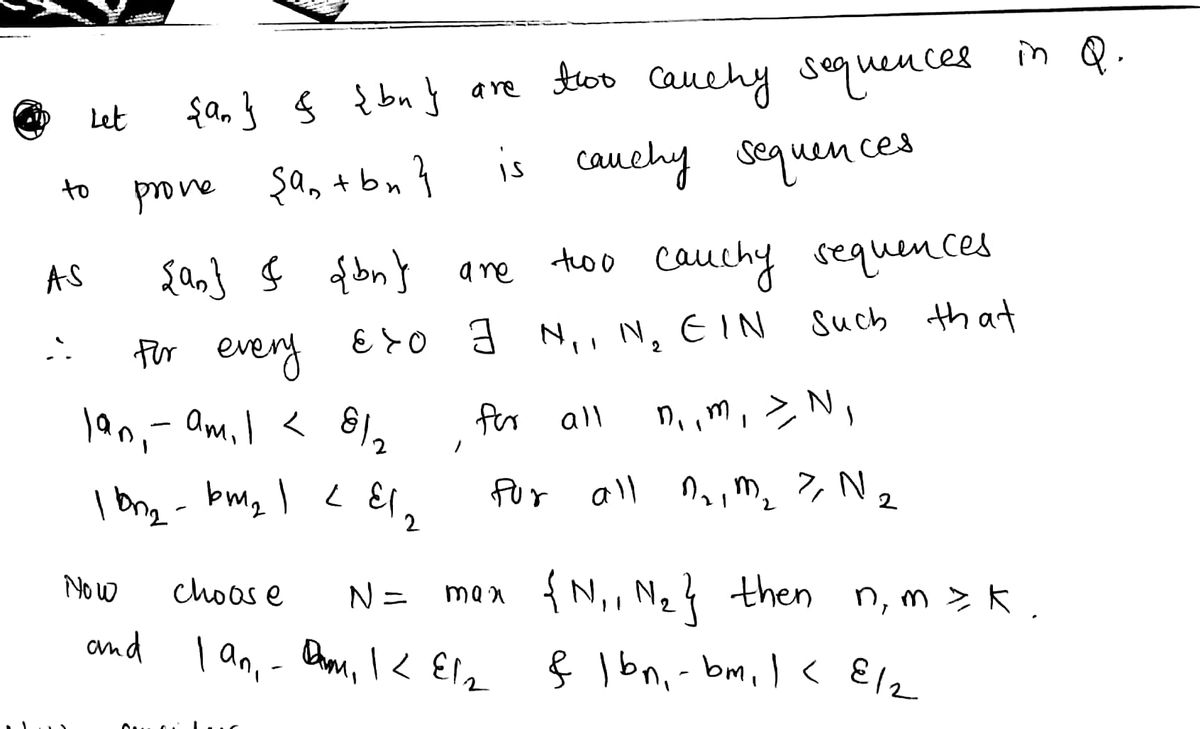 Let {aₙ} & {bₙ} are two cauchy sequences in Q.
to prove {aₙ + bₙ} is cauchy sequences
As {aₙ} & {bₙ} are two cauchy sequences
∴ for every ε>0 ∃ N₁, N₂ ∈ IN such that
|aₙ₁ - aₘ₁| < ε/2 , for all n₁, m₁ ≥ N₁
|bₙ₂ - bₘ₂| < ε/2 for all n₂, m₂ ≥ N₂
Now choose N = max {N₁, N₂} then n, m ≥ K.
and |aₙ₁ - aₘ₁| < ε/2 & |bₙ₁ - bₘ₁| < ε/2